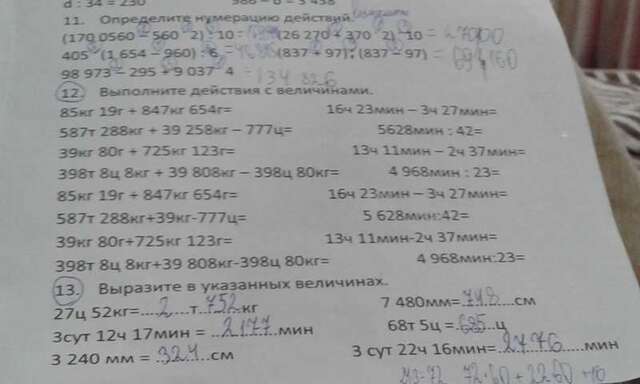 d : 34 = 230 986 – b = 3 458
11. Определите нумерацию действий.
(170 0560 – 560 2) : 10 = (26 270 + 370 2) 10 = 27000
405 (1 654 – 960) : 6 = (837 + 97) · (837 – 97) = 691,160
98 973 – 295 + 9 037 4 = 134 826
12. Выполните действия с величинами.
85кг 19г + 847кг 654г= 16ч 23мин – 3ч 27мин=
587т 288кг + 39 258кг – 777ц= 5628мин : 42=
39кг 80г + 725кг 123г= 13ч 11мин – 2ч 37мин=
398т 8ц 8кг + 39 808кг – 398ц 80кг= 4 968мин : 23=
85кг 19г + 847кг 654г= 16ч 23мин – 3ч 27мин=
587т 288кг+39кг-777ц= 5 628мин:42=
39кг 80г+725кг 123г= 13ч 11мин-2ч 37мин=
398т 8ц 8кг+39 808кг-398ц 80кг= 4 968мин:23=
13. Выразите в указанных величинах.
27ц 52кг=...2...т.752кг 7 480мм=748...см
3сут 12ч 17мин = ..2177...мин 68т 5ц =685.ц
3 240 мм = ..324....см 3 сут 22ч 16мин=..2776.....мин